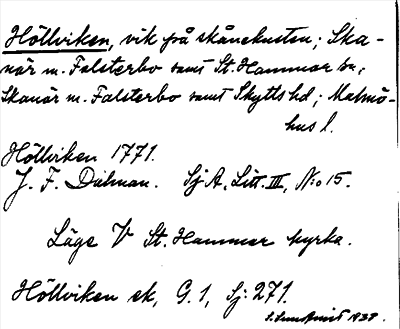 Höllviken, vik på skånekusten; Ska-
nör m. Falsterbo samt St. Hammar sn,
Skanör m. Falsterbo samt Skytts hd; Malmö-
hus l.
Höllviken 1771.
J. F. Dalman. Sj A, Litt. III, N:o 15.
Läge V St. Hammar kyrka.
Höllviken ek, G. 1, Sj: 271.
S. Sundquist 1938.